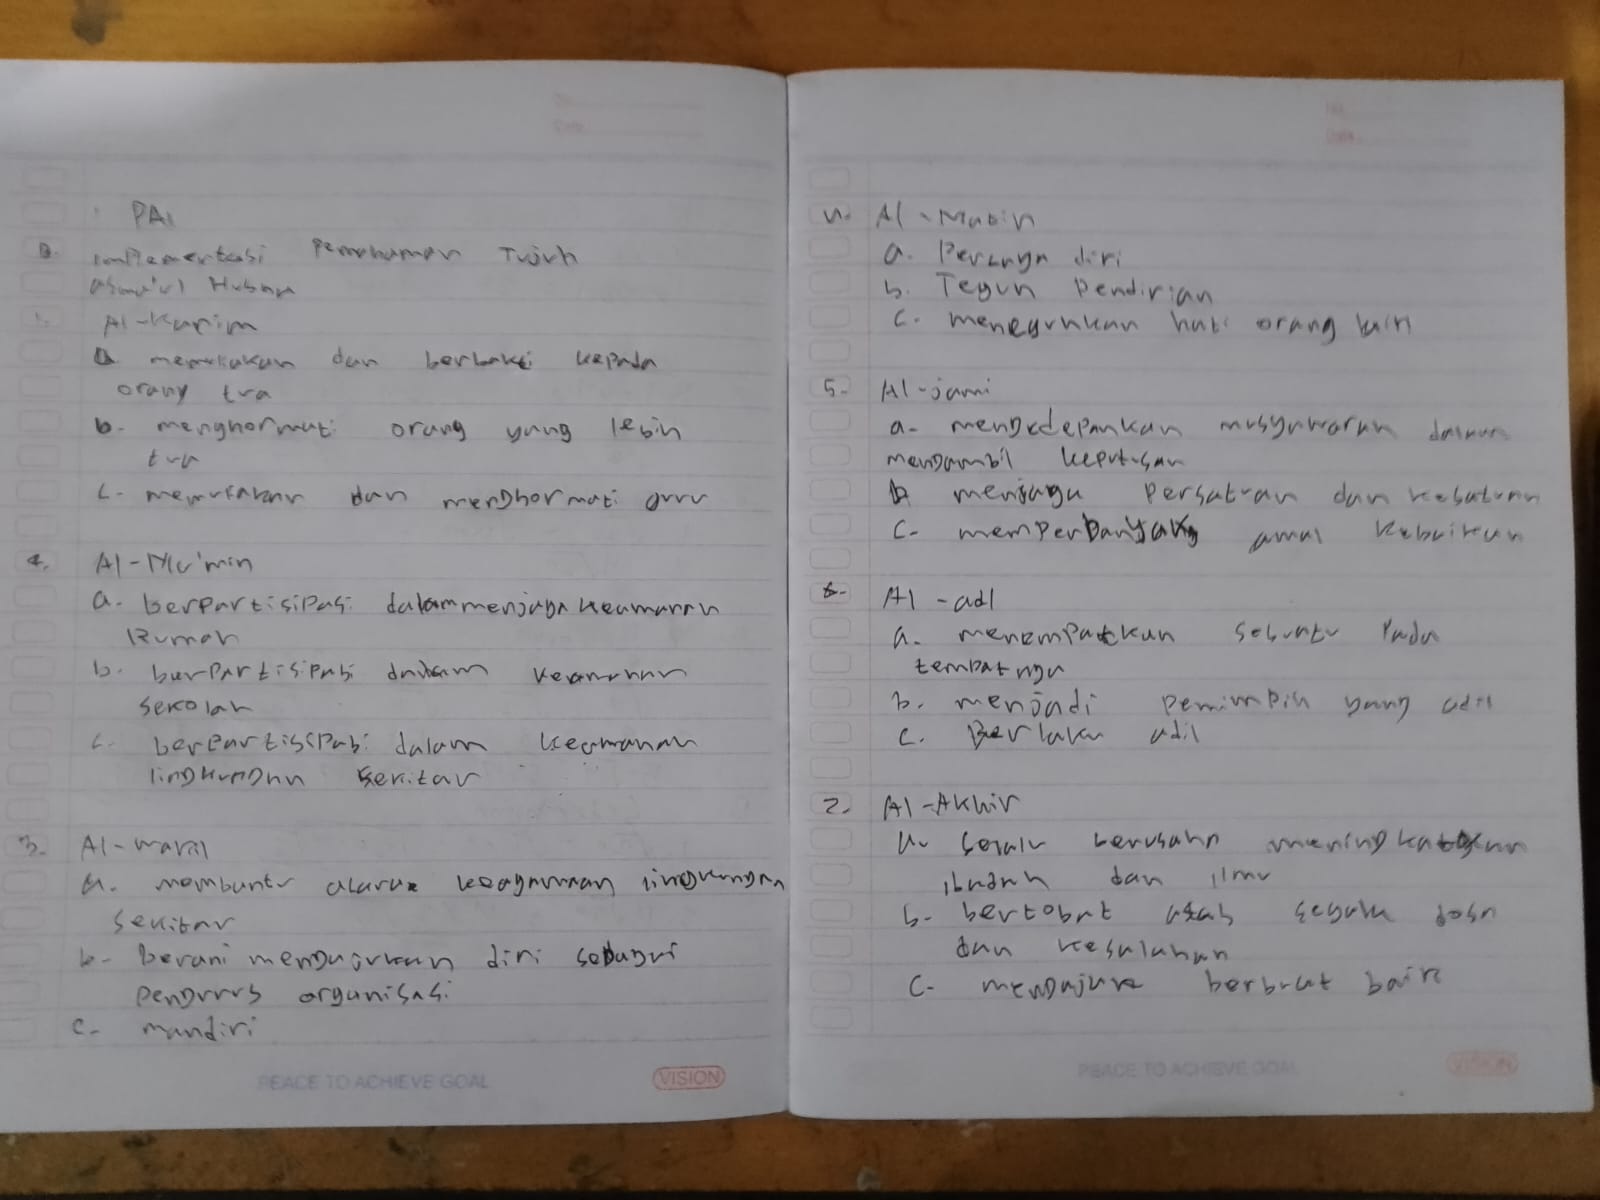 PAI
B. Implementasi Pemahaman Tujuh
Asma'ul Husna
1. Al-Karim
a memuliakan dan berbakti kepada
orang tua
b. menghormati orang yang lebih
tua
c. memuliakan dan menghormati guru
2. Al-Mu'min
a. berpartisipasi dalam menjaga keamanan
Rumah
b. berpartisipasi dalam keamanan
sekolah
c. berpartisipasi dalam keamanan
lingkungan sekitar
3. Al-wakil
a. membantu acara keagamaan lingkungan
sekitar
b. berani mengajukan diri sebagai
pengurus organisasi
c. mandiri
PEACE TO ACHIEVE GOAL
VISION
4. Al-Matin
a. Percaya diri
b. Teguh Pendirian
c. meneguhkan hati orang lain
5. Al-jami
a. mengedepankan musyawarah dalam
mengambil keputusan
b menjaga Persatuan dan kesatuan
c. memperbanyak amal kebaikan
6. Al-adl
a. menempatkan sesuatu Pada
tempatnya
b. menjadi pemimpin yang adil
c. Berlaku adil
7. Al-Akhir
a. selalu berusaha meningkatkan
ibadah dan ilmu
b. bertobat atas segala dosa
dan kesalahan
c. mengajak berbuat baik
PEACE TO ACHIEVE GOAL
VISION